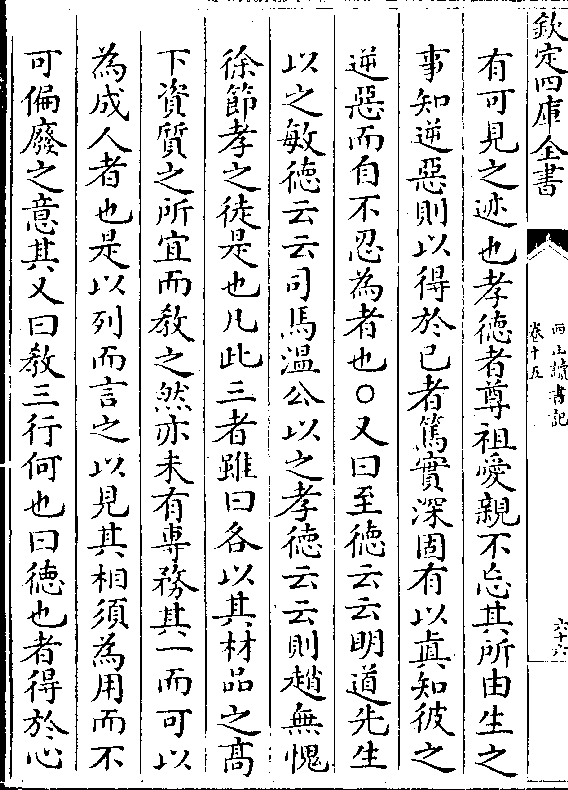 欽定四庫全書
西山讀書記
卷十五
六十六
有可見之迹也孝徳者尊祖愛親不忘其所由生之
事知逆惡則以得於己者篤實深固有以真知彼之
逆惡而自不忍為者也○又曰至徳云云明道先生
以之敏徳云云司馬温公以之孝徳云云則趙無愧
徐節孝之徒是也凡此三者雖曰各以其材品之髙
下資質之所宜而教之然亦未有專務其一而可以
為成人者也是以列而言之以見其相須為用而不
可偏廢之意其又曰教三行何也曰徳也者得於心